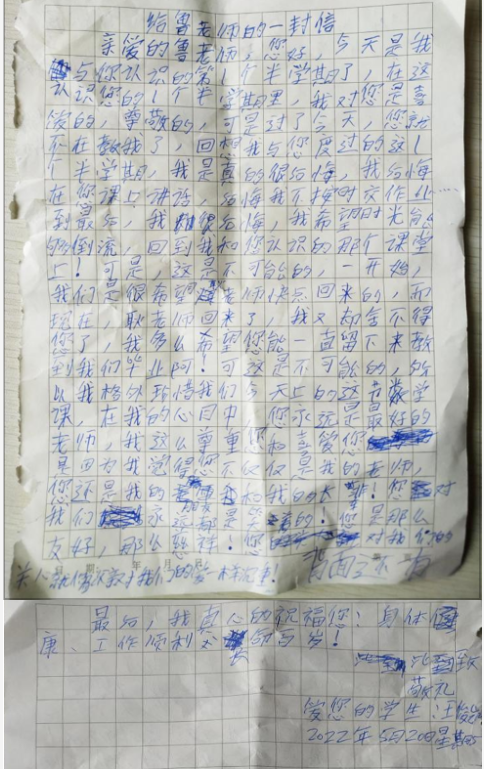 给鲁老师的一封信
亲爱的鲁老师,您好,今天是我
与你认识的第1个半学期了,在这
认识您的1个半学期里,我对您是喜
爱的,尊敬的,可是过了今天,您就
不在教我了,回想我与您度过的这1
个半学期,我是真的很后悔,我后悔
在你课上讲话,后悔我不按时交作业…
到最后,我很后悔,我希望时光能
够倒流,回到我和你认识的那个课堂
上!可是,这是不可能的,一开始,
我们是很希望老师快点回来的,而
现在,耿老师回来了,我又却舍不得
您了,我多么希望您能一直留下来教
到我们毕业阿!可这是不可能的,所
以我格外珍惜我们今天上的这节数学
课,在我的心目中,您永远是最好的
老师,我这么尊重您和喜爱您
是因为我觉得您不仅仅是我的老师,
您还是我的和我的大!您对
我们永远都是笑着的!您是那么
友好,那么慈祥!您对我们的
关心就像
背面了还有
最后,我真心的祝福您:身体健
康、工作顺利、长命百岁!
此致
敬礼
爱您的学生:汪
2022年5月20日星期